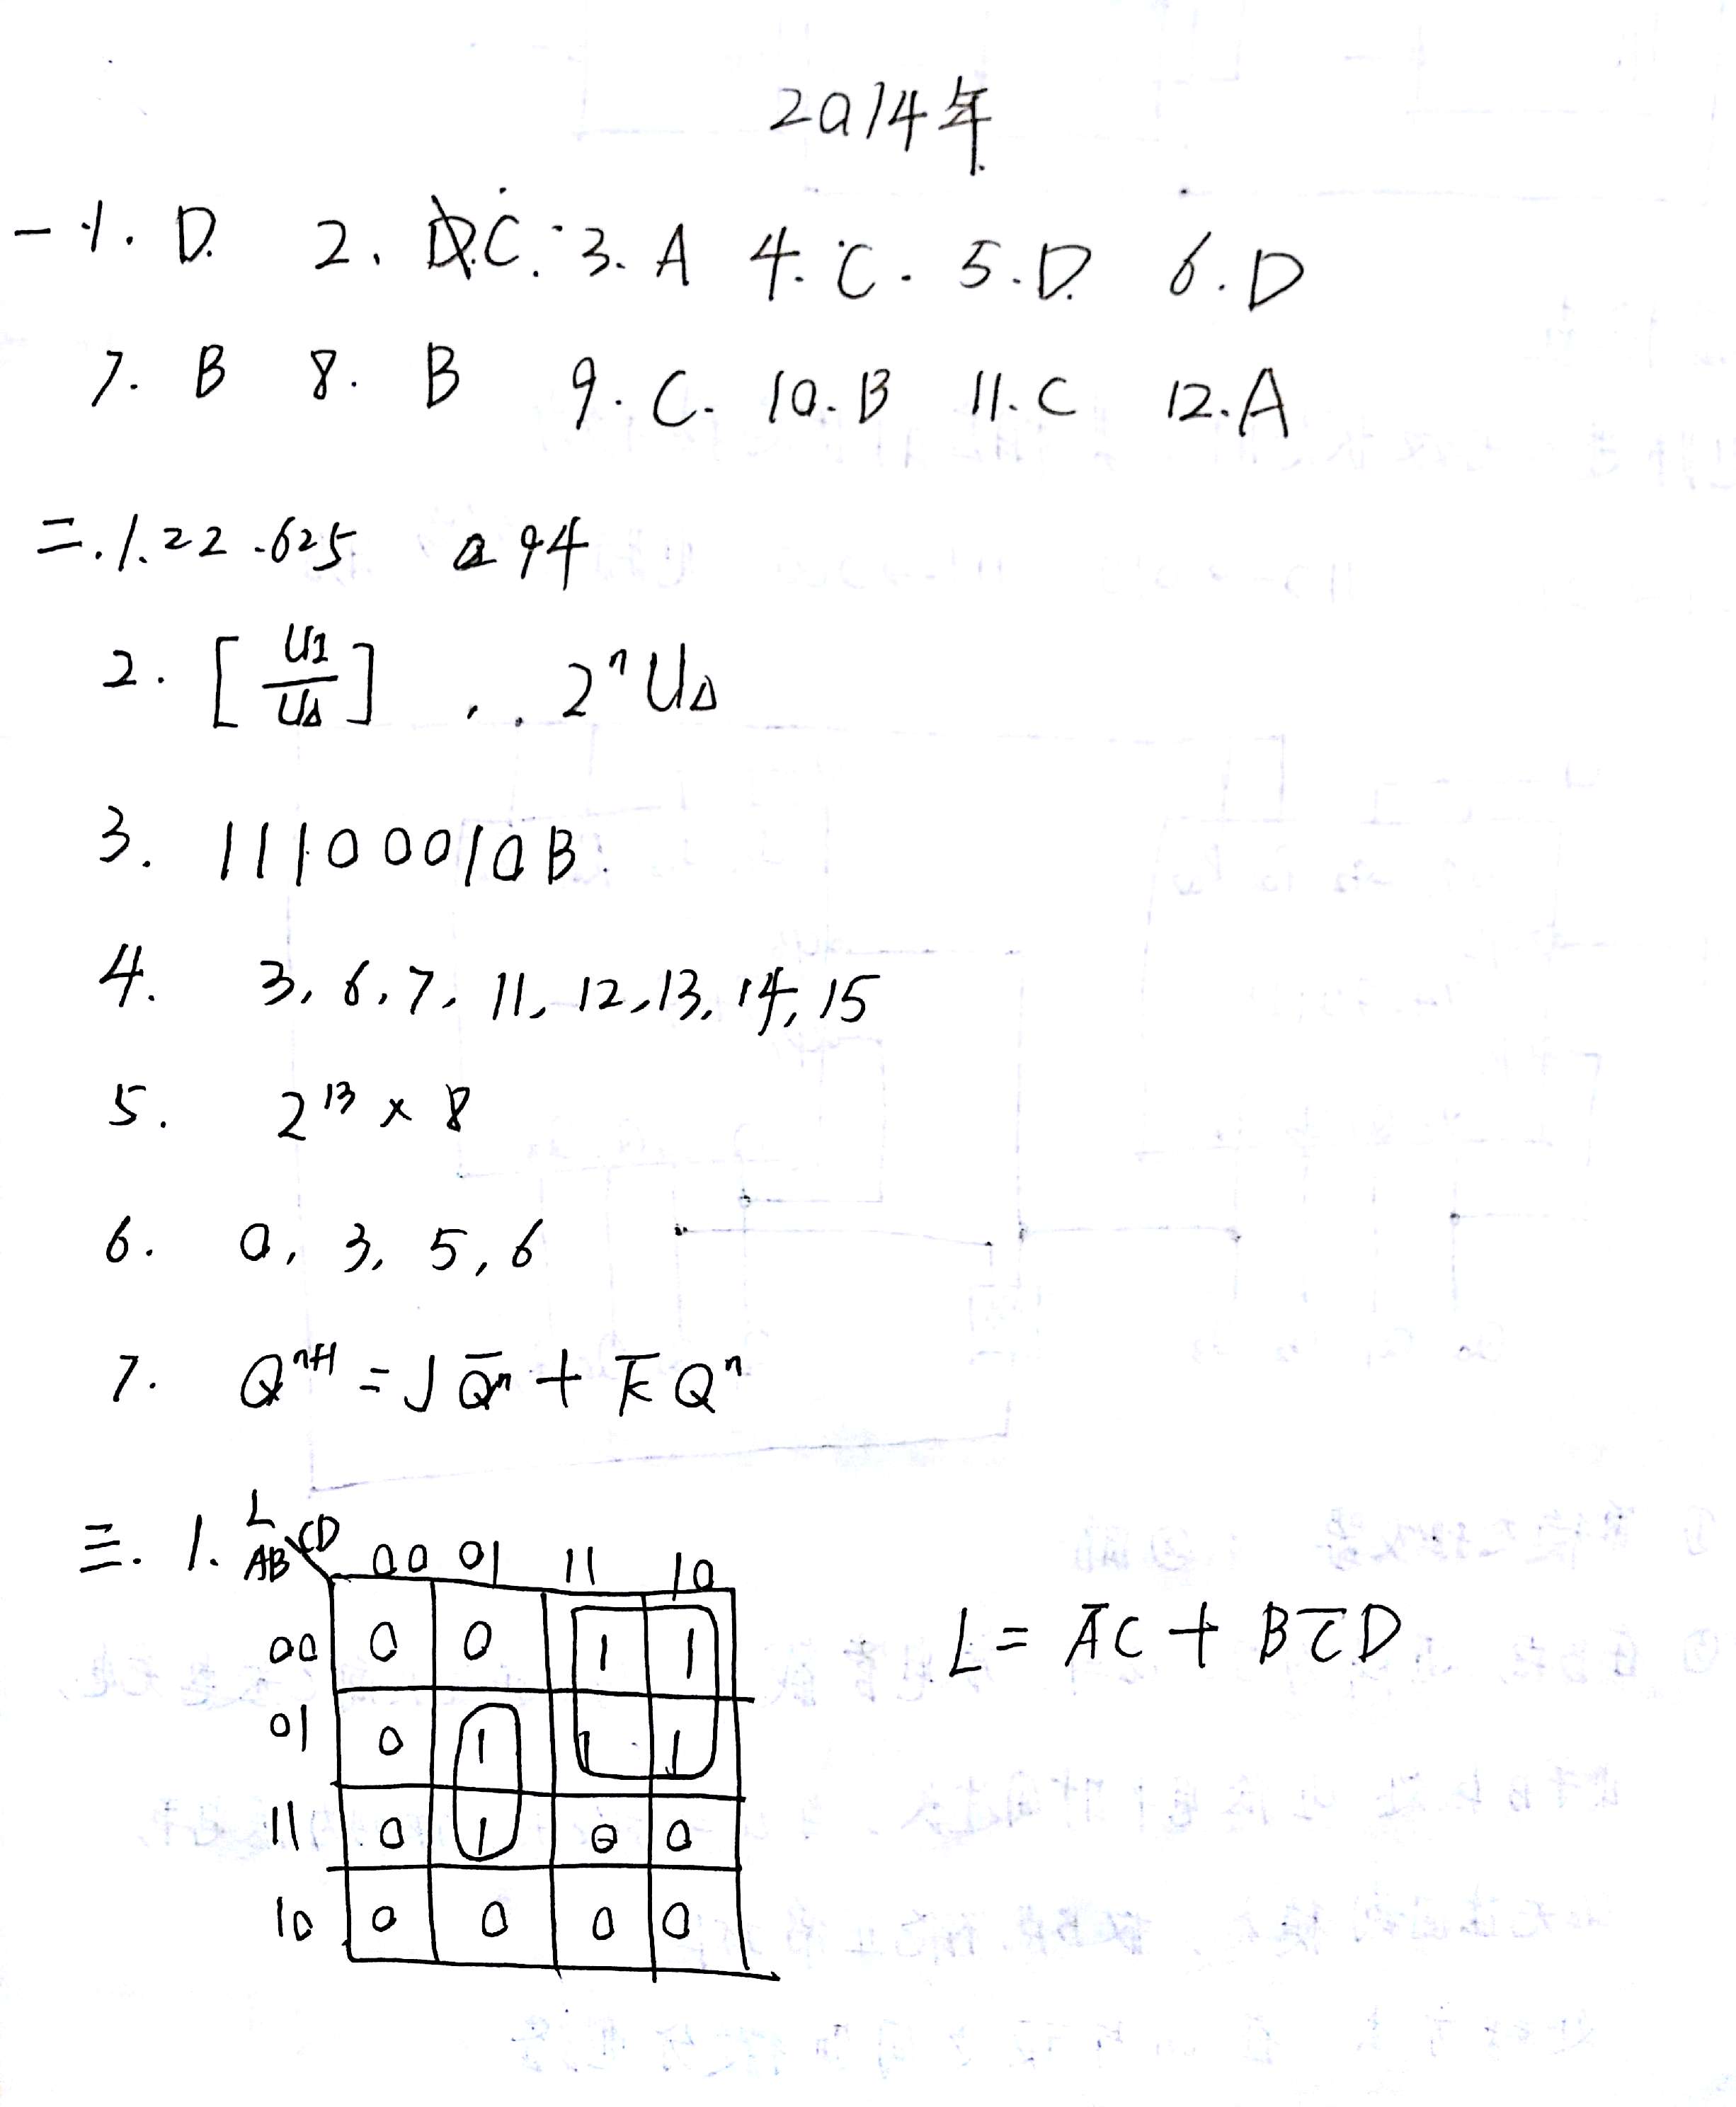 2014年
一.1. D. 2. C. 3. A 4. C. 5. D. 6. D
7. B 8. B 9. C. 10. B 11. C 12. A
二.1. 22.625 94
2. [U1/UΔ] .. 2ⁿUΔ
3. 11100010B.
4. 3, 6, 7, 11, 12, 13, 14, 15
5. 2¹³ × 8
6. 0, 3, 5, 6
7. Qⁿ⁺¹ = J Q̅ⁿ + K̅ Qⁿ
三. 1. L
AB\CD 00 01 11 10
00 0 0 1 1
01 0 1 1 1
11 0 1 0 0
10 0 0 0 0
L = A̅C + BC̅D